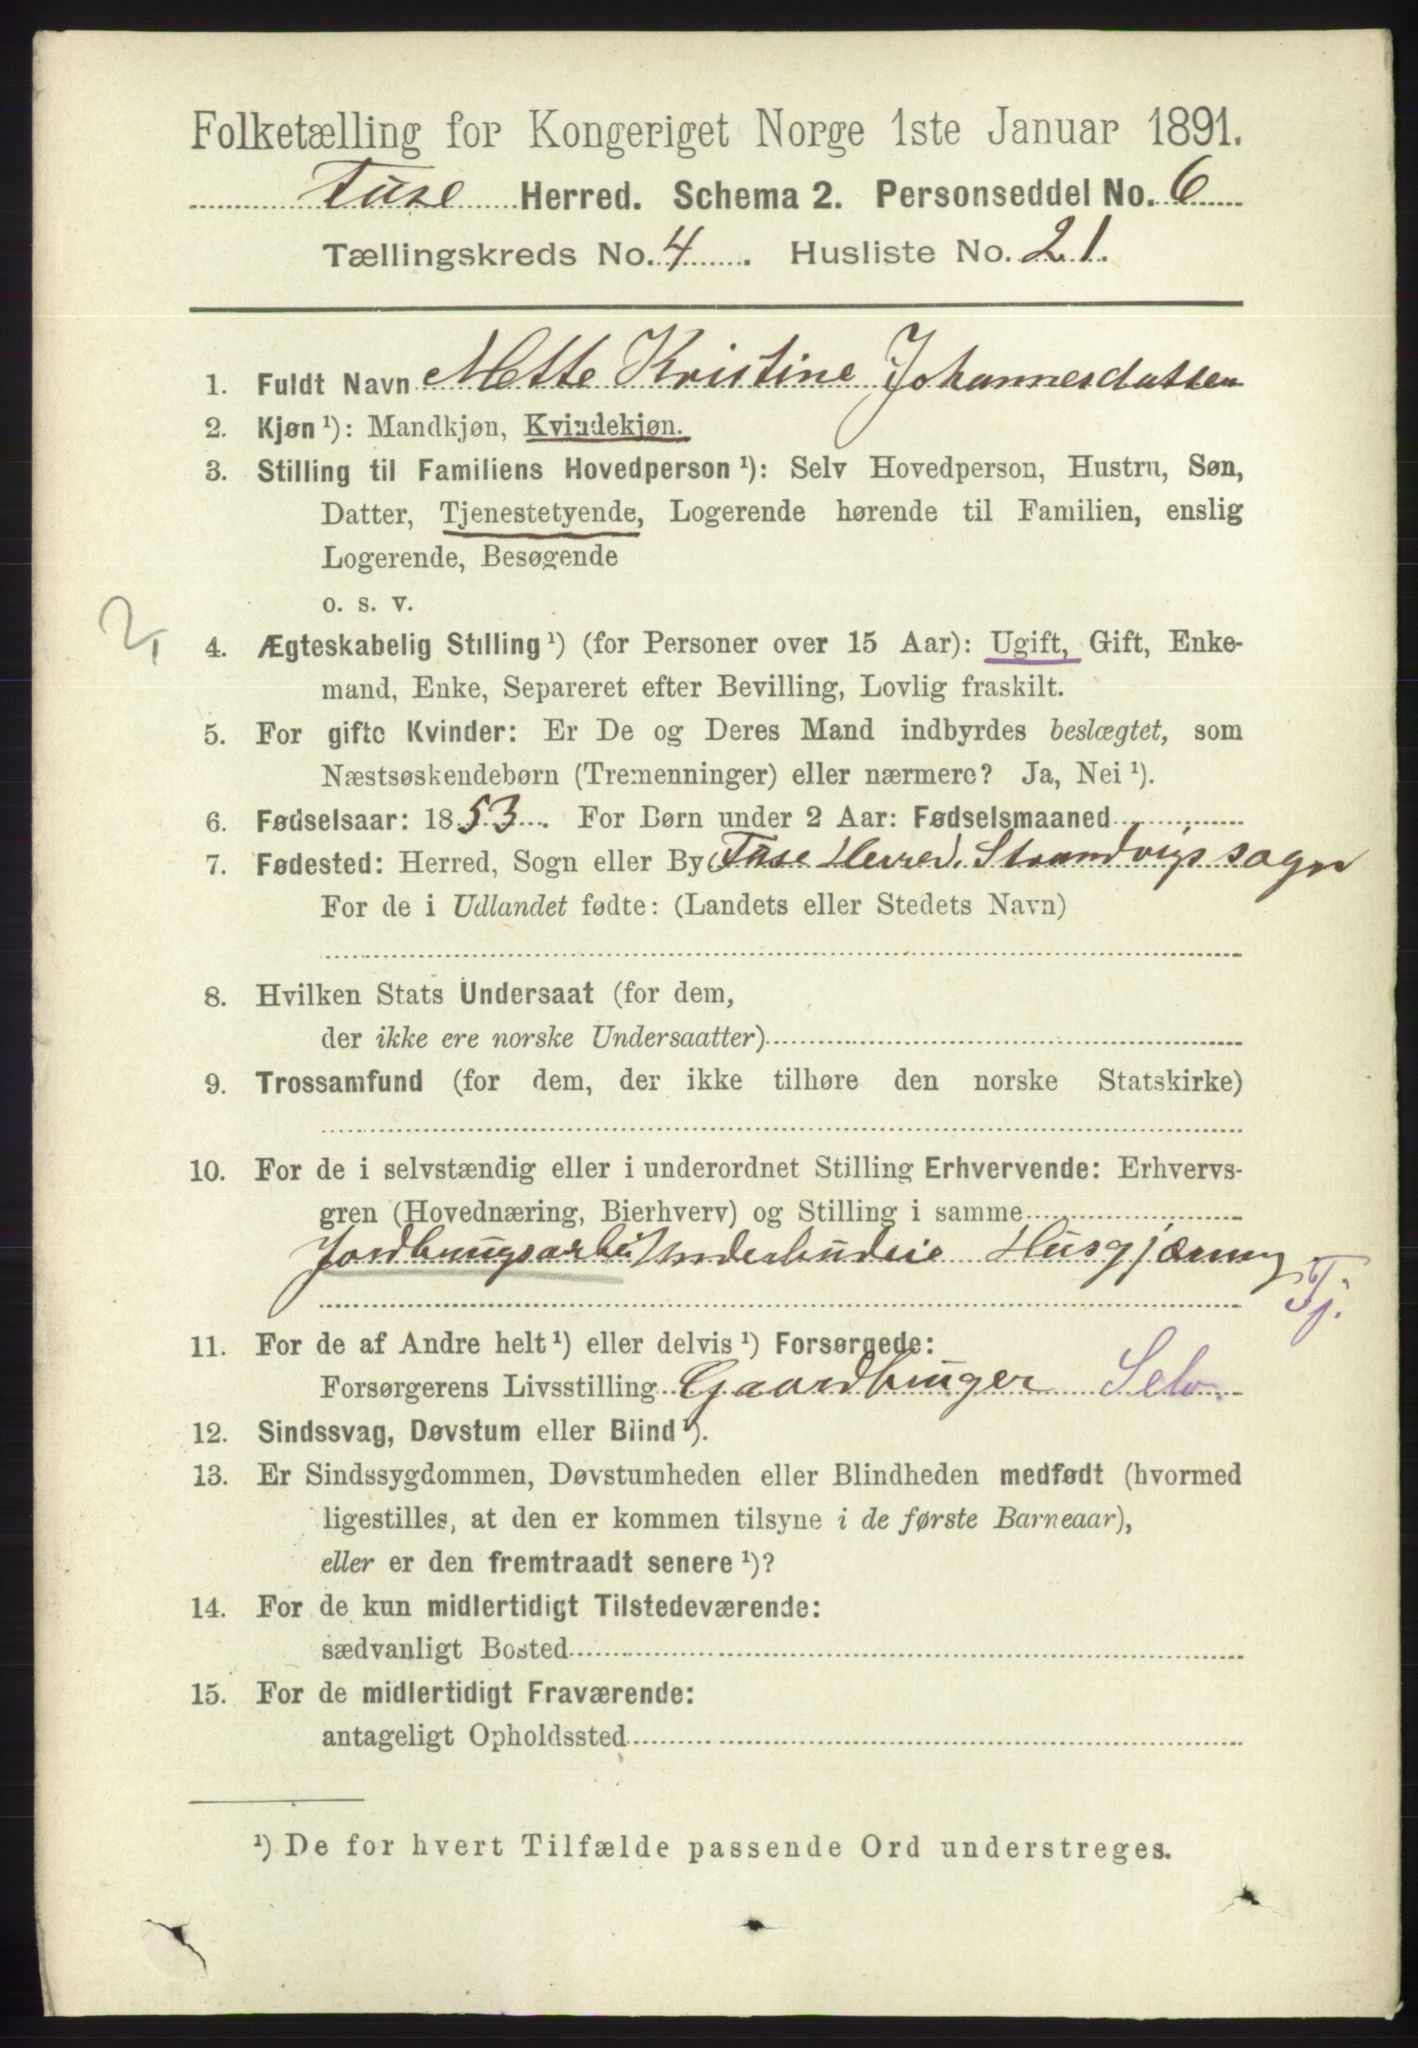 Folketælling for Kongeriget Norge 1ste Januar 1891.
Fuse Herred. Schema 2. Personseddel No. 6
Tællingskreds No. 4. Husliste No. 21.
1. Fuldt Navn Mette Kristine Johannesdatter
2. Kjøn ¹): Mandkjøn, Kvindekjøn.
3. Stilling til Familiens Hovedperson ¹): Selv Hovedperson, Hustru, Søn,
Datter, Tjenestetyende, Logerende hørende til Familien, enslig
Logerende, Besøgende
o. s. v.
2,
4. Ægteskabelig Stilling ¹) (for Personer over 15 Aar): Ugift, Gift, Enke-
mand, Enke, Separeret efter Bevilling, Lovlig fraskilt.
5. For gifte Kvinder: Er De og Deres Mand indbyrdes beslægtet, som
Næstsøskendebørn (Tremenninger) eller nærmere? Ja, Nei ¹).
6. Fødselsaar: 1853. For Børn under 2 Aar: Fødselsmaaned
7. Fødested: Herred, Sogn eller By Fuse Herred, Strandvigs sogn
For de i Udlandet fødte: (Landets eller Stedets Navn)
8. Hvilken Stats Undersaat (for dem,
der ikke ere norske Undersaatter)
9. Trossamfund (for dem, der ikke tilhøre den norske Statskirke)
10. For de i selvstændig eller i underordnet Stilling Erhvervende: Erhvervs-
gren (Hovednæring, Bierhverv) og Stilling i samme
Husgjærning
Tj.
11. For de af Andre helt ¹) eller delvis ¹) Forsørgede:
Forsørgerens Livsstilling Gaardbruger Selv.
12. Sindssvag, Døvstum eller Blind ¹).
13. Er Sindssygdommen, Døvstumheden eller Blindheden medfødt (hvormed
ligestilles, at den er kommen tilsyne i de første Barneaar),
eller er den fremtraadt senere ¹)?
14. For de kun midlertidigt Tilstedeværende:
sædvanligt Bosted
15. For de midlertidigt Fraværende:
antageligt Opholdssted
¹) De for hvert Tilfælde passende Ord understreges.